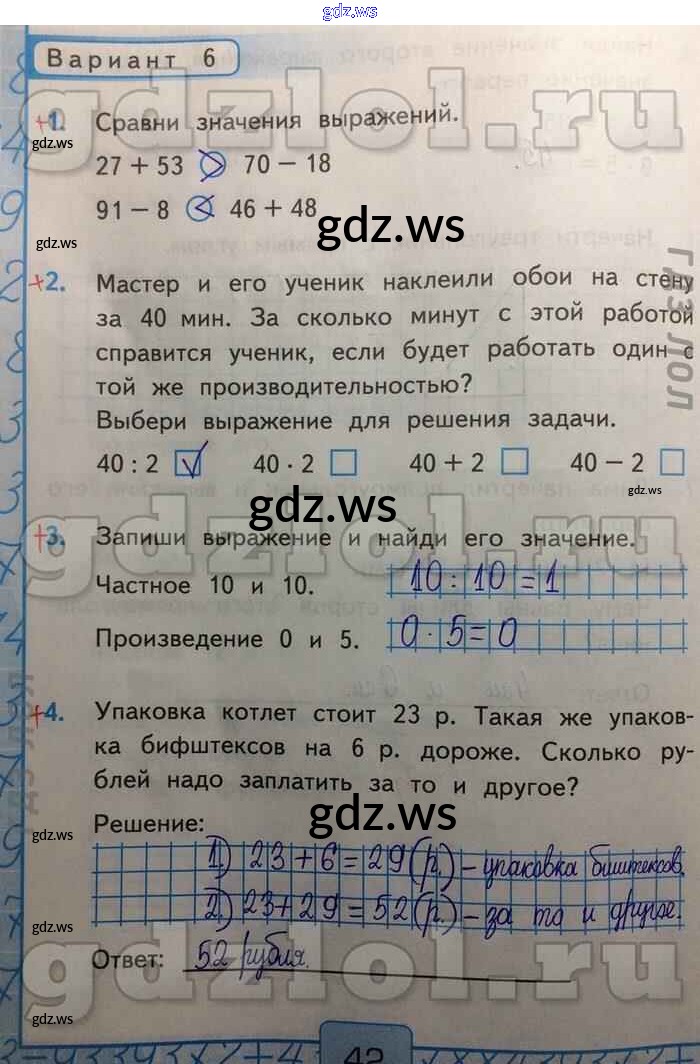 gdz.ws
Вариант 6
gdzlol.ru
+1. Сравни значения выражений.
gdz.ws
27 + 53 > 70 − 18
91 − 8 < 46 + 48
gdz.ws
gdz.ws
ГДЗ ЛОЛ
+2. Мастер и его ученик наклеили обои на стену
за 40 мин. За сколько минут с этой работой
справится ученик, если будет работать один с
той же производительностью?
Выбери выражение для решения задачи.
40 : 2 ✓ 40 · 2 □ 40 + 2 □ 40 − 2 □
gdz.ws
gdz.ws
gdzlol.ru
+3. Запиши выражение и найди его значение.
Частное 10 и 10. 10 : 10 = 1
Произведение 0 и 5. 0 · 5 = 0
+4. Упаковка котлет стоит 23 р. Такая же упаков-
ка бифштексов на 6 р. дороже. Сколько ру-
блей надо заплатить за то и другое?
gdz.ws
Решение:
gdz.ws
1) 23 + 6 = 29 (р.) – упаковка биштексов.
2) 23 + 29 = 52 (р.) – за то и другое.
gdz.ws
gdzlol.ru
Ответ: 52 рубля.
gdz.ws
42